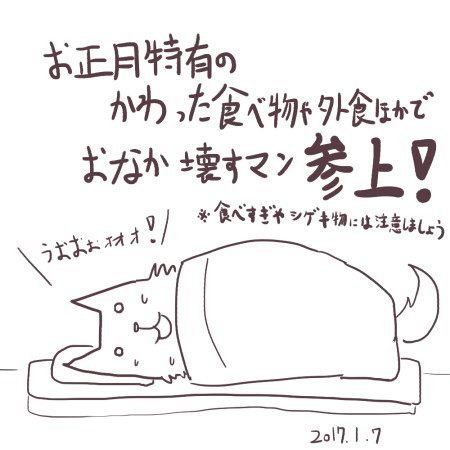 お正月特有の
かわった食べ物や外食ほかで
おなか壊すマン参上!
※食べすぎやシゲキ物には注意しましょう
うおおぉオオ!
2017.1.7